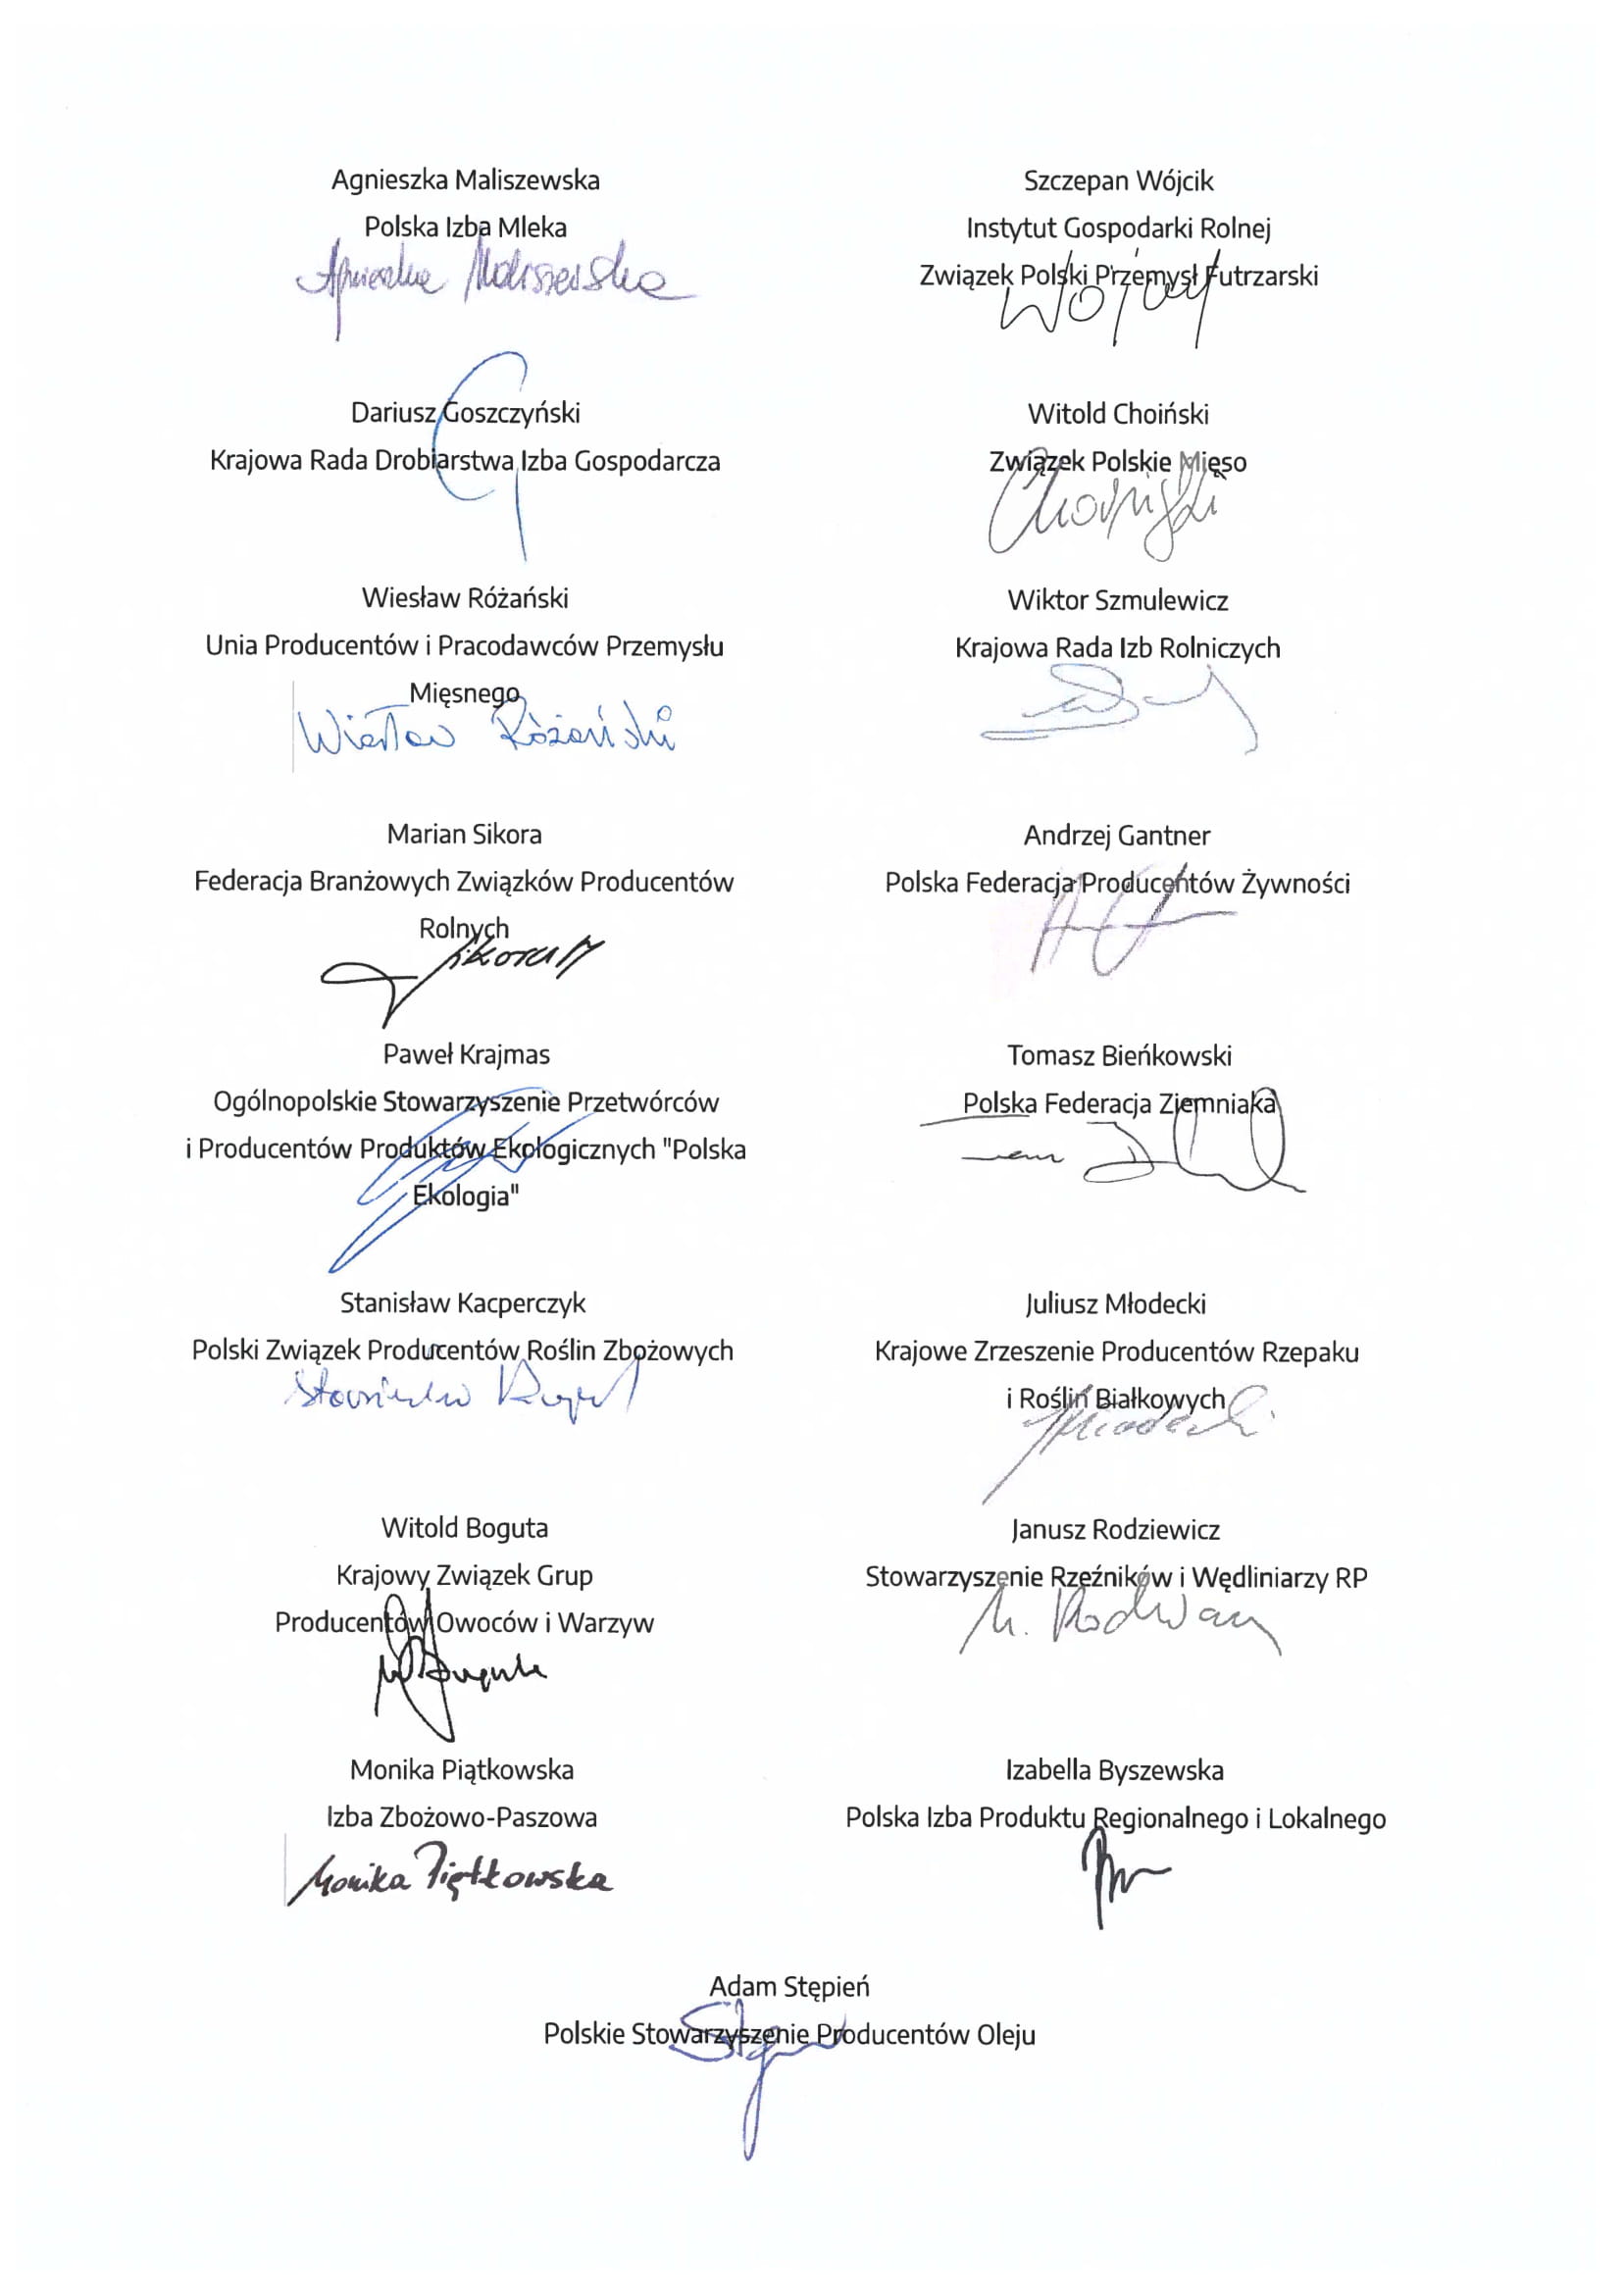 Agnieszka Maliszewska
Polska Izba Mleka
Agnieszka Maliszewska
Szczepan Wójcik
Instytut Gospodarki Rolnej
Związek Polski Przemysł Futrzarski
Wójcik
Dariusz Goszczyński
Krajowa Rada Drobiarstwa Izba Gospodarcza
Witold Choiński
Związek Polskie Mięso
Choiński
Wiesław Różański
Unia Producentów i Pracodawców Przemysłu
Mięsnego
Wiesław Różański
Wiktor Szmulewicz
Krajowa Rada Izb Rolniczych
Marian Sikora
Federacja Branżowych Związków Producentów
Rolnych
Sikora M
Andrzej Gantner
Polska Federacja Producentów Żywności
Paweł Krajmas
Ogólnopolskie Stowarzyszenie Przetwórców
i Producentów Produktów Ekologicznych "Polska
Ekologia"
Tomasz Bieńkowski
Polska Federacja Ziemniaka
Stanisław Kacperczyk
Polski Związek Producentów Roślin Zbożowych
Stanisław
Juliusz Młodecki
Krajowe Zrzeszenie Producentów Rzepaku
i Roślin Białkowych
Młodecki
Witold Boguta
Krajowy Związek Grup
Producentów Owoców i Warzyw
Janusz Rodziewicz
Stowarzyszenie Rzeźników i Wędliniarzy RP
Monika Piątkowska
Izba Zbożowo-Paszowa
Monika Piątkowska
Izabella Byszewska
Polska Izba Produktu Regionalnego i Lokalnego
Adam Stępień
Polskie Stowarzyszenie Producentów Oleju